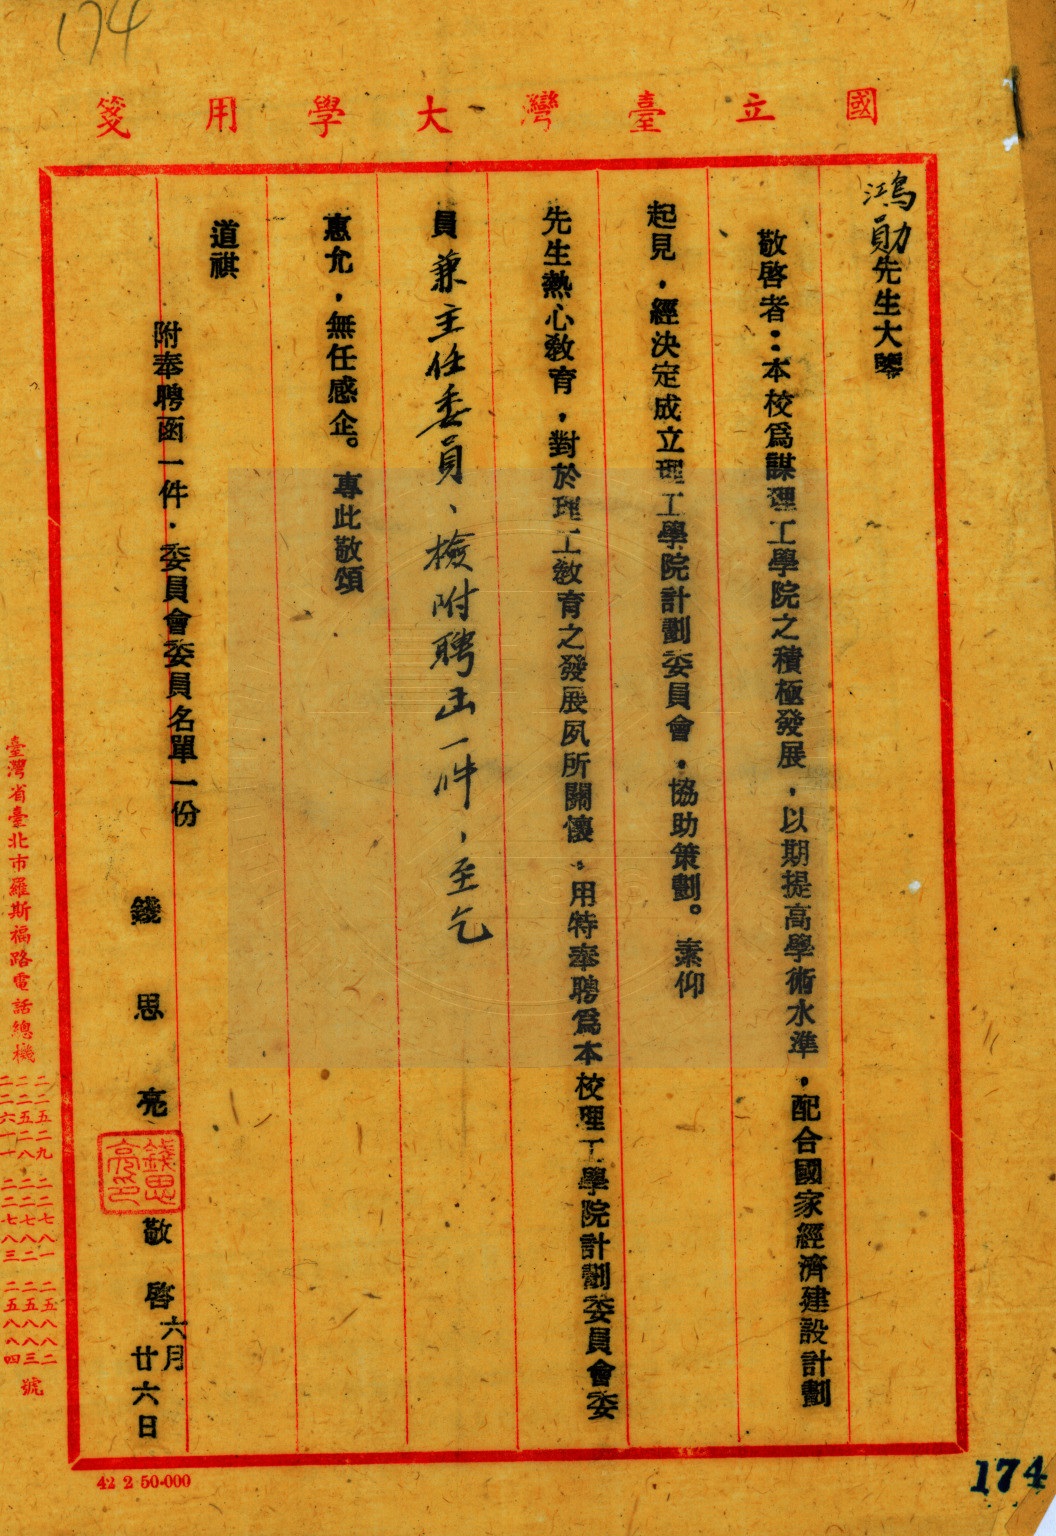 174
國立臺灣大學用箋
鴻勛先生大鑒
敬啓者：本校爲謀理工學院之積極發展，以期提高學術水準，配合國家經濟建設計劃
起見，經決定成立理工學院計劃委員會，協助策劃。素仰
先生熱心教育，對於理工教育之發展夙所關懷，用特奉聘爲本校理工學院計劃委員會委
員兼主任委員、檢附聘函一件，至乞
惠允，無任感企。專此敬頌
道祺
附奉聘函一件．委員會委員名單一份
錢思亮
錢思亮印
敬啓
六月廿六日
臺灣省臺北市羅斯福路電話總機
二二五二九 二二七八一 二五八八二
二二五二八 二二七八二 二五八八三
二二六一一 二二七八三 二五八八四
號
42 2 50·000
174